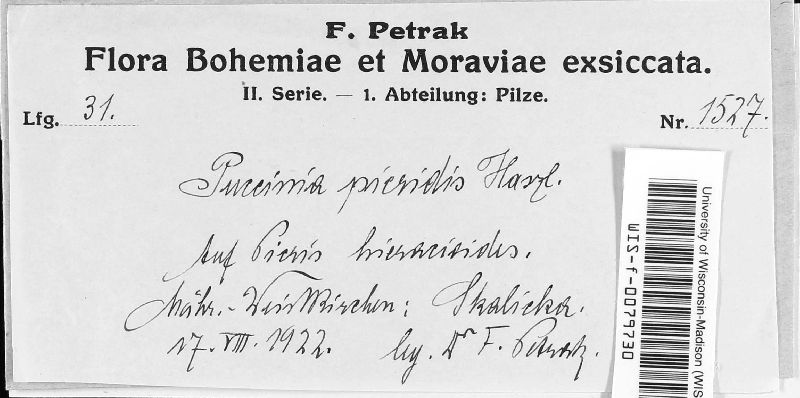 F. Petrak
Flora Bohemiae et Moraviae exsiccata.
II. Serie. — 1. Abteilung: Pilze.
Lfg. 31.
Nr. 1527.
Puccinia picridis Hazl.
Auf Picris hieracioides.
Mähr.-Weisskirchen: Skalicka.
17. VIII. 1922. leg. Dr F. Petrak.
University of Wisconsin-Madison (WIS
WIS-f-0079730